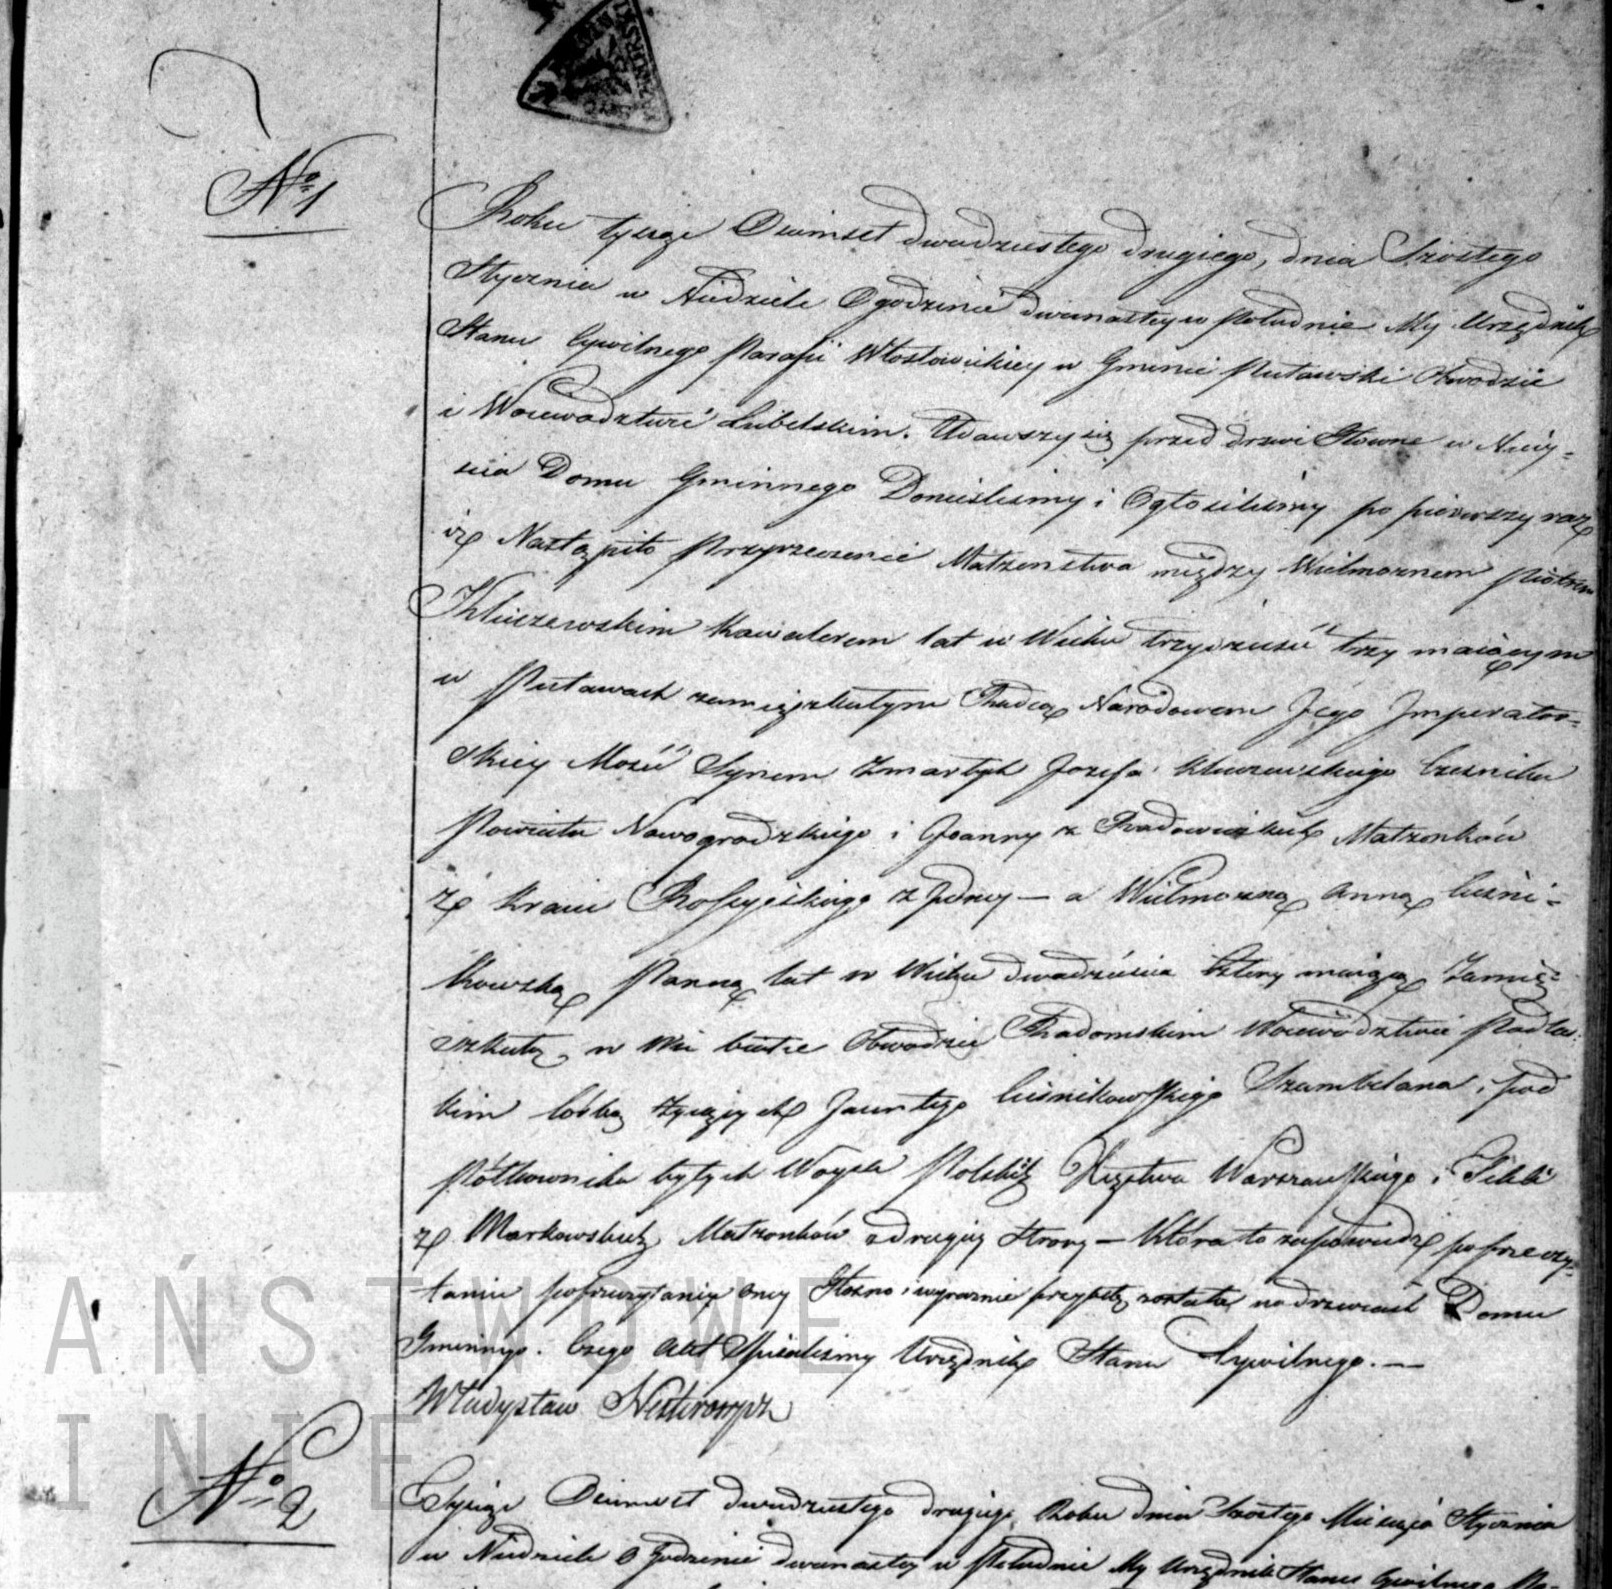 No 1
Roku tysiąc Osiemset dwudziestego drugiego, dnia Szóstego
Stycznia w Niedziele O godzinie dwunastey w Południe My Urzędnik
Stanu Cywilnego Parafii Włostowickiey w Gminie Puławski Obwodzie
i Woiewodztwie Lubelskim. Udawszy się przed drzwi Głowne w Miey-
sca Domu Gminnego Donieślismy i Ogłosilismy po pierwszy raz
iż Nastąpiło Przyrzeczenie Małzenstwa między Wielmoznem Piotrem
Kluczewskim Kawalerem lat w Wieku trzydzieści trzy maiącym
w Puławach zamięszkałym Radcą Narodowem Jego Imperator-
skiey Mości Synem zmarłych Jozefa Kluczewskiego Czesnika
Powiatu Nowogrodzkiego i Joanny z Radowickich Małzonków
z Kraiu Rossyiskiego z Jedney — a Wielmozną Anną Cieśni-
kowską Panną lat w Wieku dwadzieścia Cztery maiącą Zamię-
szkałą w Wsi Obwodzie Radomskim Woiewodztwie Podla-
kim Córką żyiących Jacentego Cieśnikowskiego Szambelana i pod
Półkownika byłych Woysk Polskich Xięstwa Warszawskiego i Tekli
z Markowskich Małzonków z drugiey Strony — Która to zapowiedz po przeczy-
taniu poprzeczytaniu oney Głosno i wyraznie przybitą została na drzwiach Domu
Gminnego. Czego Akt Spisalismy Urzędnik Stanu Cywilnego. —
Władysław
No 2
Tysiąc Osiemset dwudziestego drugiego Roku dnia Szóstego Miesiąca Stycznia
w Niedziele O Godzinie dwunastey w Południe My Urzędnik Stanu Cywilnego
AŃSTWOWE
INIE